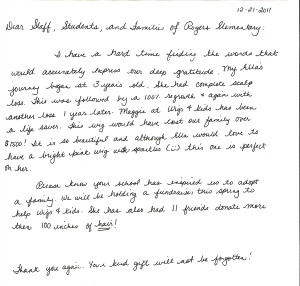 12-21-2011
Dear Staff, Students, and Families of Rogers Elementary:
I have a hard time finding the words that
would accurately express our deep gratitude. My Ella's
journey began at 3 years old. She had complete scalp
loss. This was followed by a 100% regrowth & again with
another loss 1 year later. Maggie at Wigs 4 Kids has been
a life saver. This wig would have cost our family over
$1500! It is so beautiful and although Ella would love to
have a bright pink wig with sparkles (:) this one is perfect
on her.
Please know your school has inspired us to adopt
a family. We will be holding a fundraiser this spring to
help Wigs 4 Kids. She has also had 11 friends donate more
than 100 inches of hair!
Thank you again. Your kind gift will not be forgotten!